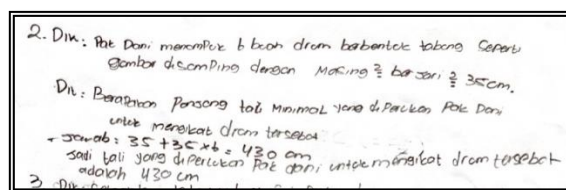 2. Dik : Pak Dani menempuk 6 buah drum berbentuk tabung seperti
gambar disamping dengan masing² berjari² 35cm.
Dit : Berapakan Panjang tali Minimal yang diperlukan Pak Dani
untuk mengikat drum tersebut
- Jawab : 35 + 35 x 6 = 430 cm
Jadi tali yang diperlukan Pak dani untuk mengikat drum tersebut
adalah 430 cm
3